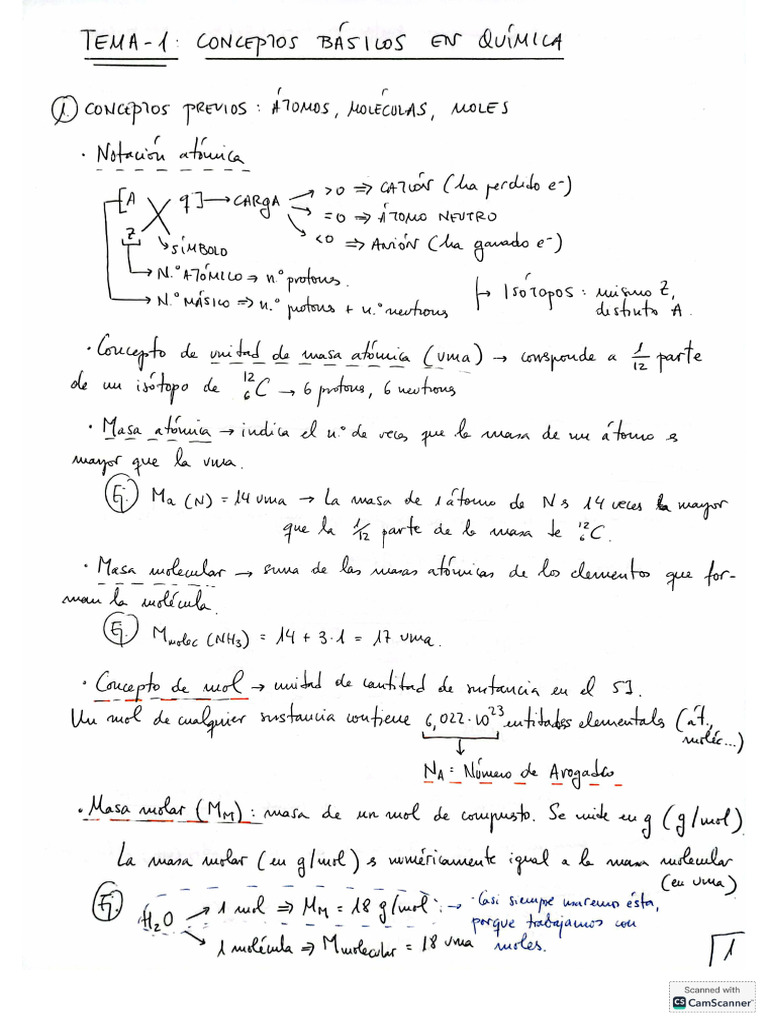 TEMA-1: CONCEPTOS BÁSICOS EN QUÍMICA
1. CONCEPTOS PREVIOS: ÁTOMOS, MOLÉCULAS, MOLES
· Notación atómica
[A q] → CARGA → >0 ⇒ CATIÓN (ha perdido e⁻)
→ =0 ⇒ ÁTOMO NEUTRO
→ <0 ⇒ ANIÓN (ha ganado e⁻)
Z → SÍMBOLO
→ N.º ATÓMICO ⇒ n.º protons.
→ N.º MÁSICO ⇒ n.º protons + n.º neutrons
↦ ISÓTOPOS: mismo Z,
distinto A.
· Concepto de unidad de masa atómica (uma) → corresponde a 1/12 parte
de un isótopo de ¹²₆C → 6 protons, 6 neutrons
· Masa atómica → indica el n.º de veces que la masa de un átomo es
mayor que la uma.
Ej. Ma (N) = 14 uma → La masa de 1 átomo de N es 14 veces la mayor
que la 1/12 parte de la masa de ¹²₆C.
· Masa molecular → suma de las masas atómicas de los elementos que for-
man la molécula.
Ej. Mmolec (NH₃) = 14 + 3·1 = 17 uma.
· Concepto de mol → unidad de cantidad de sustancia en el SI.
Un mol de cualquier sustancia contiene 6,022·10²³ entidades elementales (át.,
moléc...)
↓
NA: Número de Avogadro
· Masa molar (MM): masa de un mol de compuesto. Se mide en g (g/mol)
La masa molar (en g/mol) es numéricamente igual a la masa molecular
(en uma)
Ej. H₂O → 1 mol ⇒ MM = 18 g/mol → Casi siempre usaremos ésta,
porque trabajamos con
→ 1 molécula ⇒ Mmolecular = 18 uma moles.
1
Scanned with
CS CamScanner